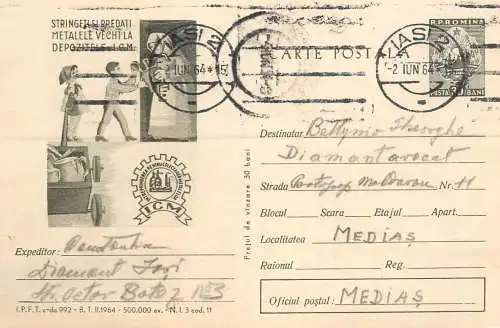 STRINGEȚI ȘI PREDAȚI
METALELE VECHI LA
DEPOZITELE I.C.M.
IAȘI 2
-2 IUN 64 * 15
CARTE POSTALA
IAȘI 2
-2 IUN 64 *
R.P.ROMINA
POSTA 30 BANI
ICM
Prețul de vînzare 30 bani
Destinatar Gheorghe
Diamant avocat
Strada Moldovan Nr. 11
Blocul Scara Etajul Apart.
Localitatea MEDIAȘ
Raionul Reg.
Oficiul poștal: MEDIAȘ
Expeditor: Constantin
Diamant Iași
Str. Octav Botez No3
I.P.F.T. c-da 992 - B.T. II.1964 - 500.000 ex. - N.I. 3 cod. 11